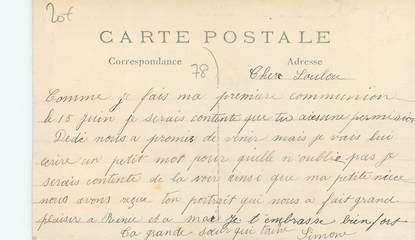 20f
CARTE POSTALE
Correspondance
Adresse
78
Cher Loulou
Comme je fais ma première communion
le 15 juin je serais contente que tu aiesune permission
Dédé nous a promis de venir mais je vais lui
écrire un petit mot pour quelle n'oublie pas je
serais contente de la voir ainsi que ma petite nièce
nous avons reçue ton portrait qui nous a fait grand
plaisir a Renée et a moi je t'embrasse bien fort
Ta grande sœur qui t'aime
Simone